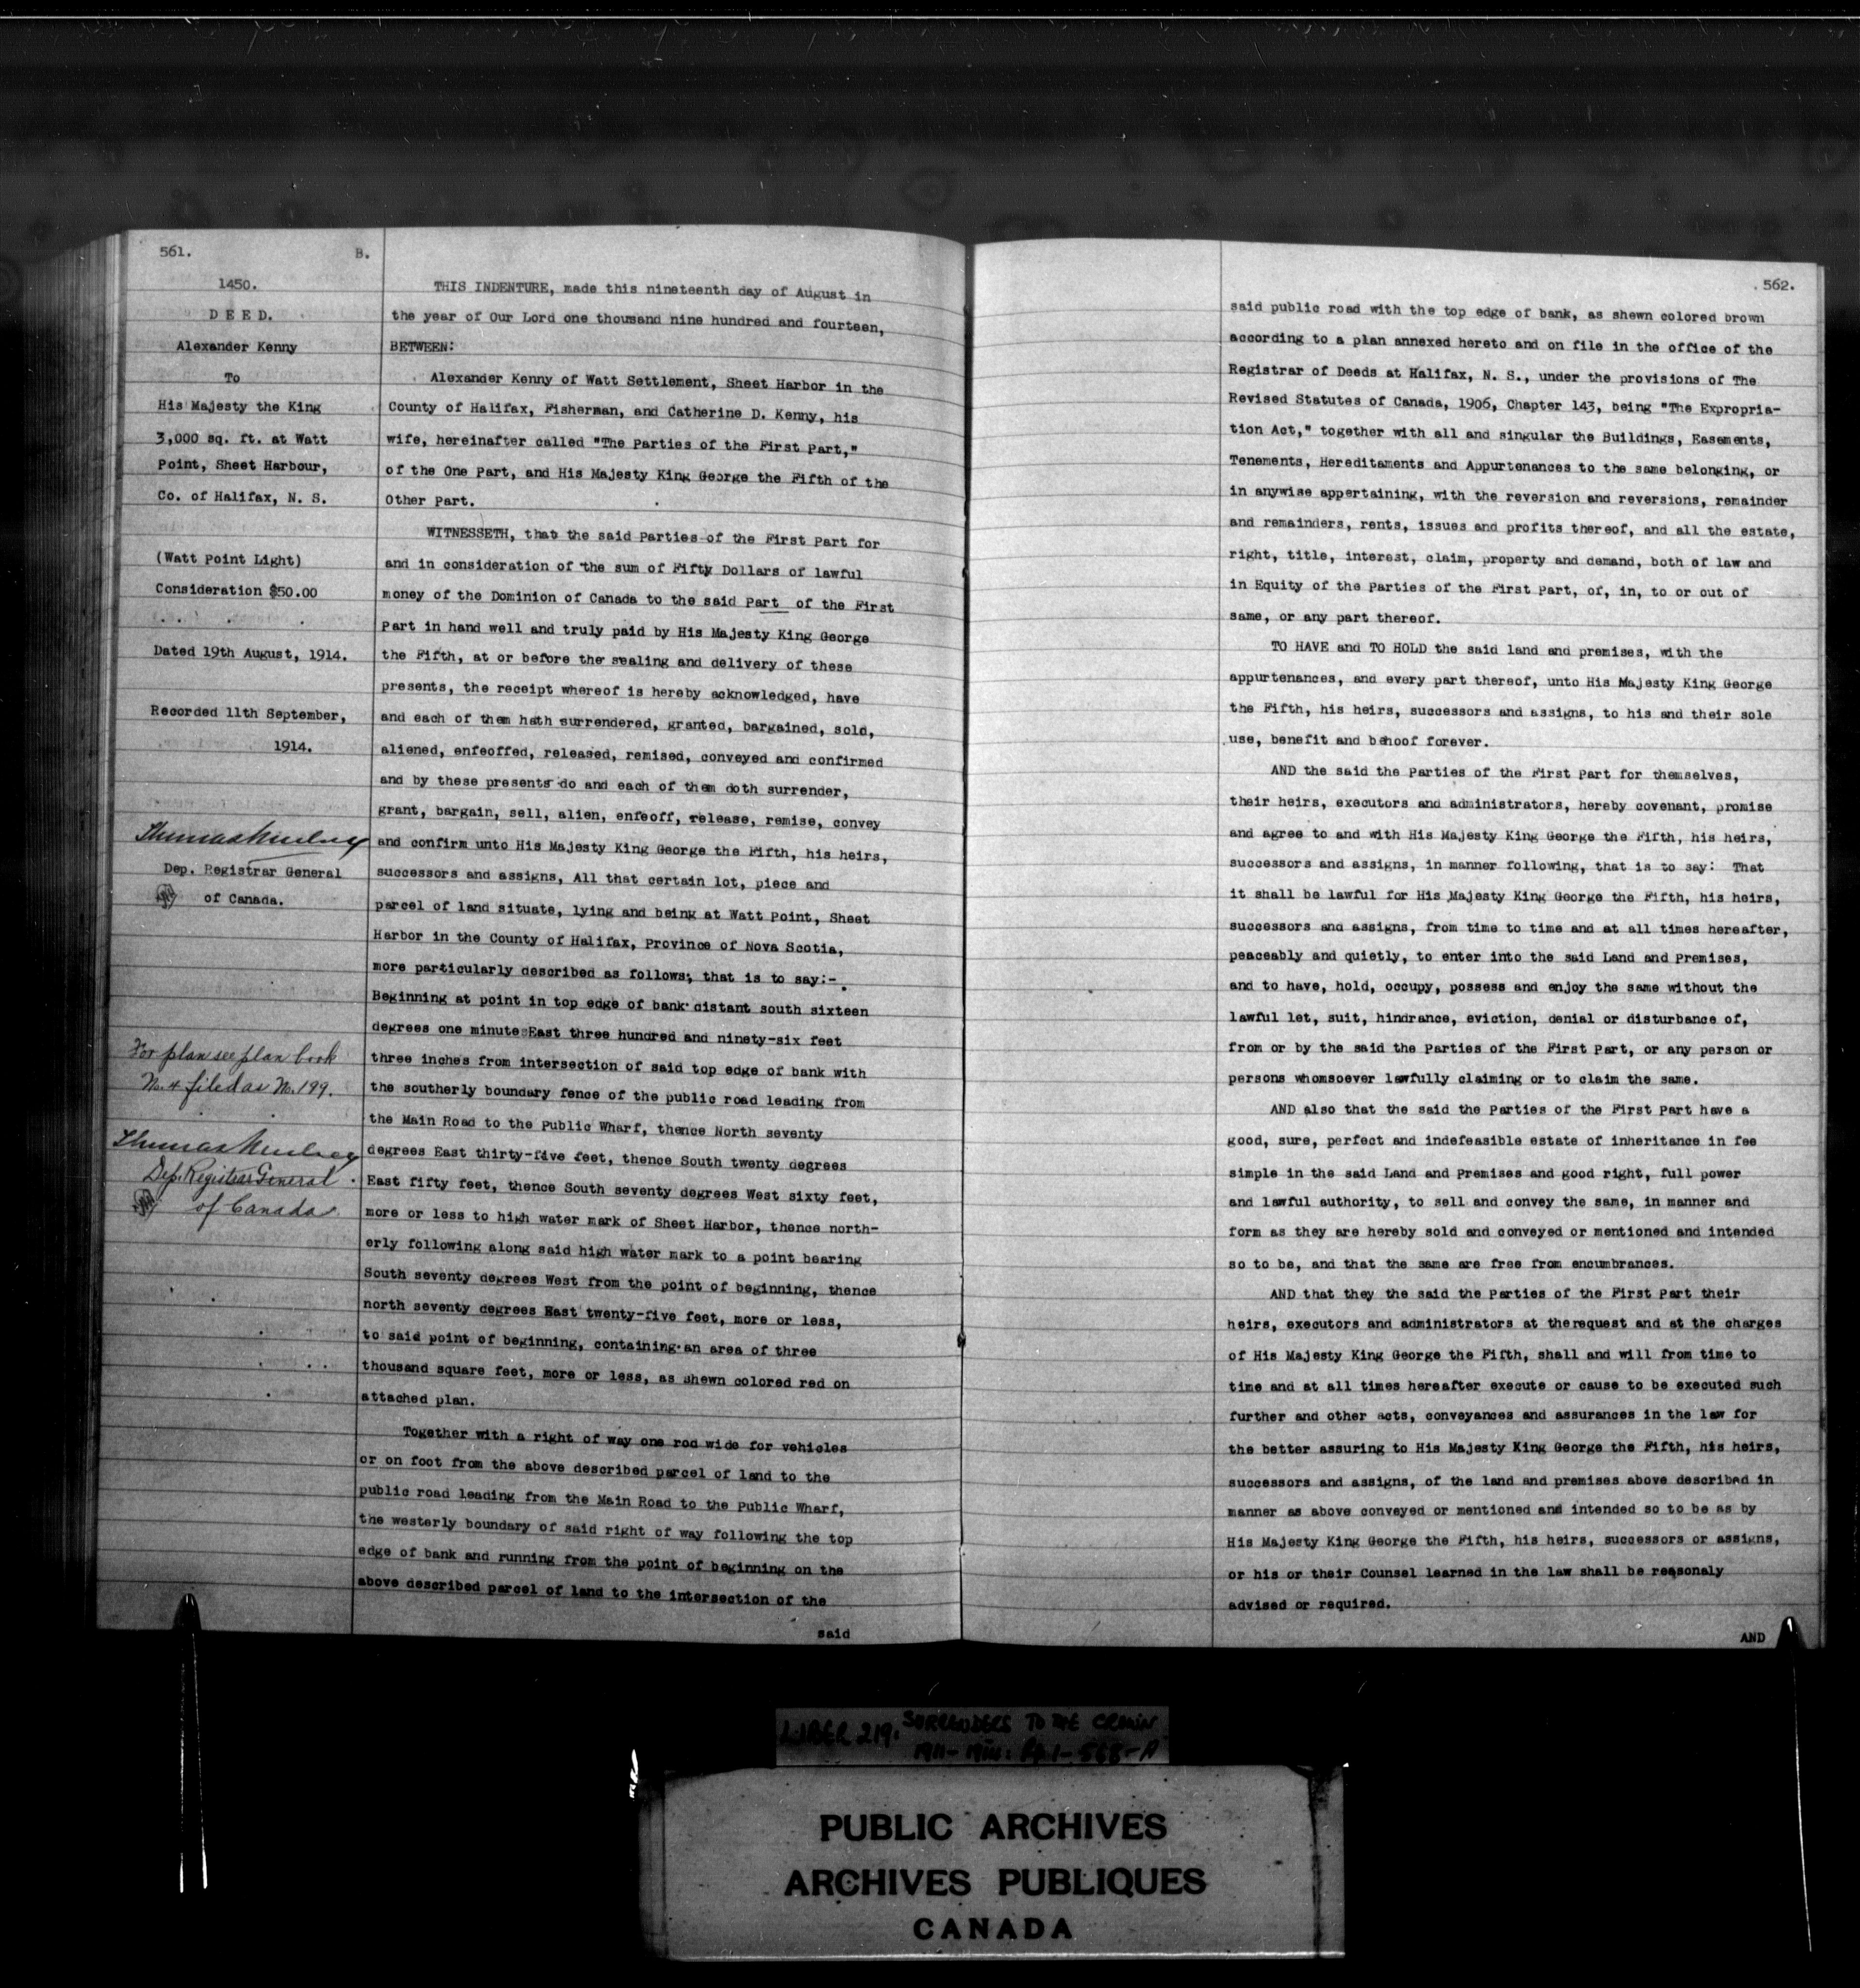 561.
B.
1450.
D E E D.
Alexander Kenny
To
His Majesty the King
3,000 sq. ft. at Watt
Point, Sheet Harbour,
Co. of Halifax, N. S.
(Watt Point Light)
Consideration $50.00
Dated 19th August, 1914.
Recorded 11th September,
1914.
Thomas
Dep. Registrar General
of Canada.
For plan see plan book
No. 4 filed as No. 199.
Thomas
Dep. Registrar General
of Canada
THIS INDENTURE, made this nineteenth day of August in
the year of Our Lord one thousand nine hundred and fourteen,
BETWEEN:
Alexander Kenny of Watt Settlement, Sheet Harbor in the
County of Halifax, Fisherman, and Catherine D. Kenny, his
wife, hereinafter called "The Parties of the First Part,"
of the One Part, and His Majesty King George the Fifth of the
Other Part.
WITNESSETH, that the said Parties of the First Part for
and in consideration of the sum of Fifty Dollars of lawful
money of the Dominion of Canada to the said Part of the First
Part in hand well and truly paid by His Majesty King George
the Fifth, at or before the sealing and delivery of these
presents, the receipt whereof is hereby acknowledged, have
and each of them hath surrendered, granted, bargained, sold,
aliened, enfeoffed, released, remised, conveyed and confirmed
and by these presents do and each of them doth surrender,
grant, bargain, sell, alien, enfeoff, release, remise, convey
and confirm unto His Majesty King George the Fifth, his heirs,
successors and assigns, All that certain lot, piece and
parcel of land situate, lying and being at Watt Point, Sheet
Harbor in the County of Halifax, Province of Nova Scotia,
more particularly described as follows; that is to say:-
Beginning at point in top edge of bank distant south sixteen
degrees one minute East three hundred and ninety-six feet
three inches from intersection of said top edge of bank with
the southerly boundary fence of the public road leading from
the Main Road to the Public Wharf, thence North seventy
degrees East thirty-five feet, thence South twenty degrees
East fifty feet, thence South seventy degrees West sixty feet,
more or less to high water mark of Sheet Harbor, thence north-
erly following along said high water mark to a point bearing
South seventy degrees West from the point of beginning, thence
north seventy degrees East twenty-five feet, more or less,
to said point of beginning, containing an area of three
thousand square feet, more or less, as shewn colored red on
attached plan.
Together with a right of way one rod wide for vehicles
or on foot from the above described parcel of land to the
public road leading from the Main Road to the Public Wharf,
the westerly boundary of said right of way following the top
edge of bank and running from the point of beginning on the
above described parcel of land to the intersection of the
said
562.
said public road with the top edge of bank, as shewn colored brown
according to a plan annexed hereto and on file in the office of the
Registrar of Deeds at Halifax, N. S., under the provisions of The
Revised Statutes of Canada, 1906, Chapter 143, being "The Expropria-
tion Act," together with all and singular the Buildings, Easements,
Tenements, Hereditaments and Appurtenances to the same belonging, or
in anywise appertaining, with the reversion and reversions, remainder
and remainders, rents, issues and profits thereof, and all the estate,
right, title, interest, claim, property and demand, both of law and
in Equity of the Parties of the First Part, of, in, to or out of
same, or any part thereof.
TO HAVE and TO HOLD the said land and premises, with the
appurtenances, and every part thereof, unto His Majesty King George
the Fifth, his heirs, successors and assigns, to his and their sole
use, benefit and behoof forever.
AND the said the Parties of the First Part for themselves,
their heirs, executors and administrators, hereby covenant, promise
and agree to and with His Majesty King George the Fifth, his heirs,
successors and assigns, in manner following, that is to say: That
it shall be lawful for His Majesty King George the Fifth, his heirs,
successors and assigns, from time to time and at all times hereafter,
peaceably and quietly, to enter into the said Land and Premises,
and to have, hold, occupy, possess and enjoy the same without the
lawful let, suit, hindrance, eviction, denial or disturbance of,
from or by the said the Parties of the First Part, or any person or
persons whomsoever lawfully claiming or to claim the same.
AND also that the said the Parties of the First Part have a
good, sure, perfect and indefeasible estate of inheritance in fee
simple in the said Land and Premises and good right, full power
and lawful authority, to sell and convey the same, in manner and
form as they are hereby sold and conveyed or mentioned and intended
so to be, and that the same are free from encumbrances.
AND that they the said the Parties of the First Part their
heirs, executors and administrators at therequest and at the charges
of His Majesty King George the Fifth, shall and will from time to
time and at all times hereafter execute or cause to be executed such
further and other acts, conveyances and assurances in the law for
the better assuring to His Majesty King George the Fifth, his heirs,
successors and assigns, of the land and premises above described in
manner as above conveyed or mentioned and intended so to be as by
His Majesty King George the Fifth, his heirs, successors or assigns,
or his or their Counsel learned in the law shall be reasonaly
advised or required.
AND
LIBER 219. SURRENDERS TO THE CROWN
1911-1914. pp. 1-568-A
PUBLIC ARCHIVES
ARCHIVES PUBLIQUES
CANADA